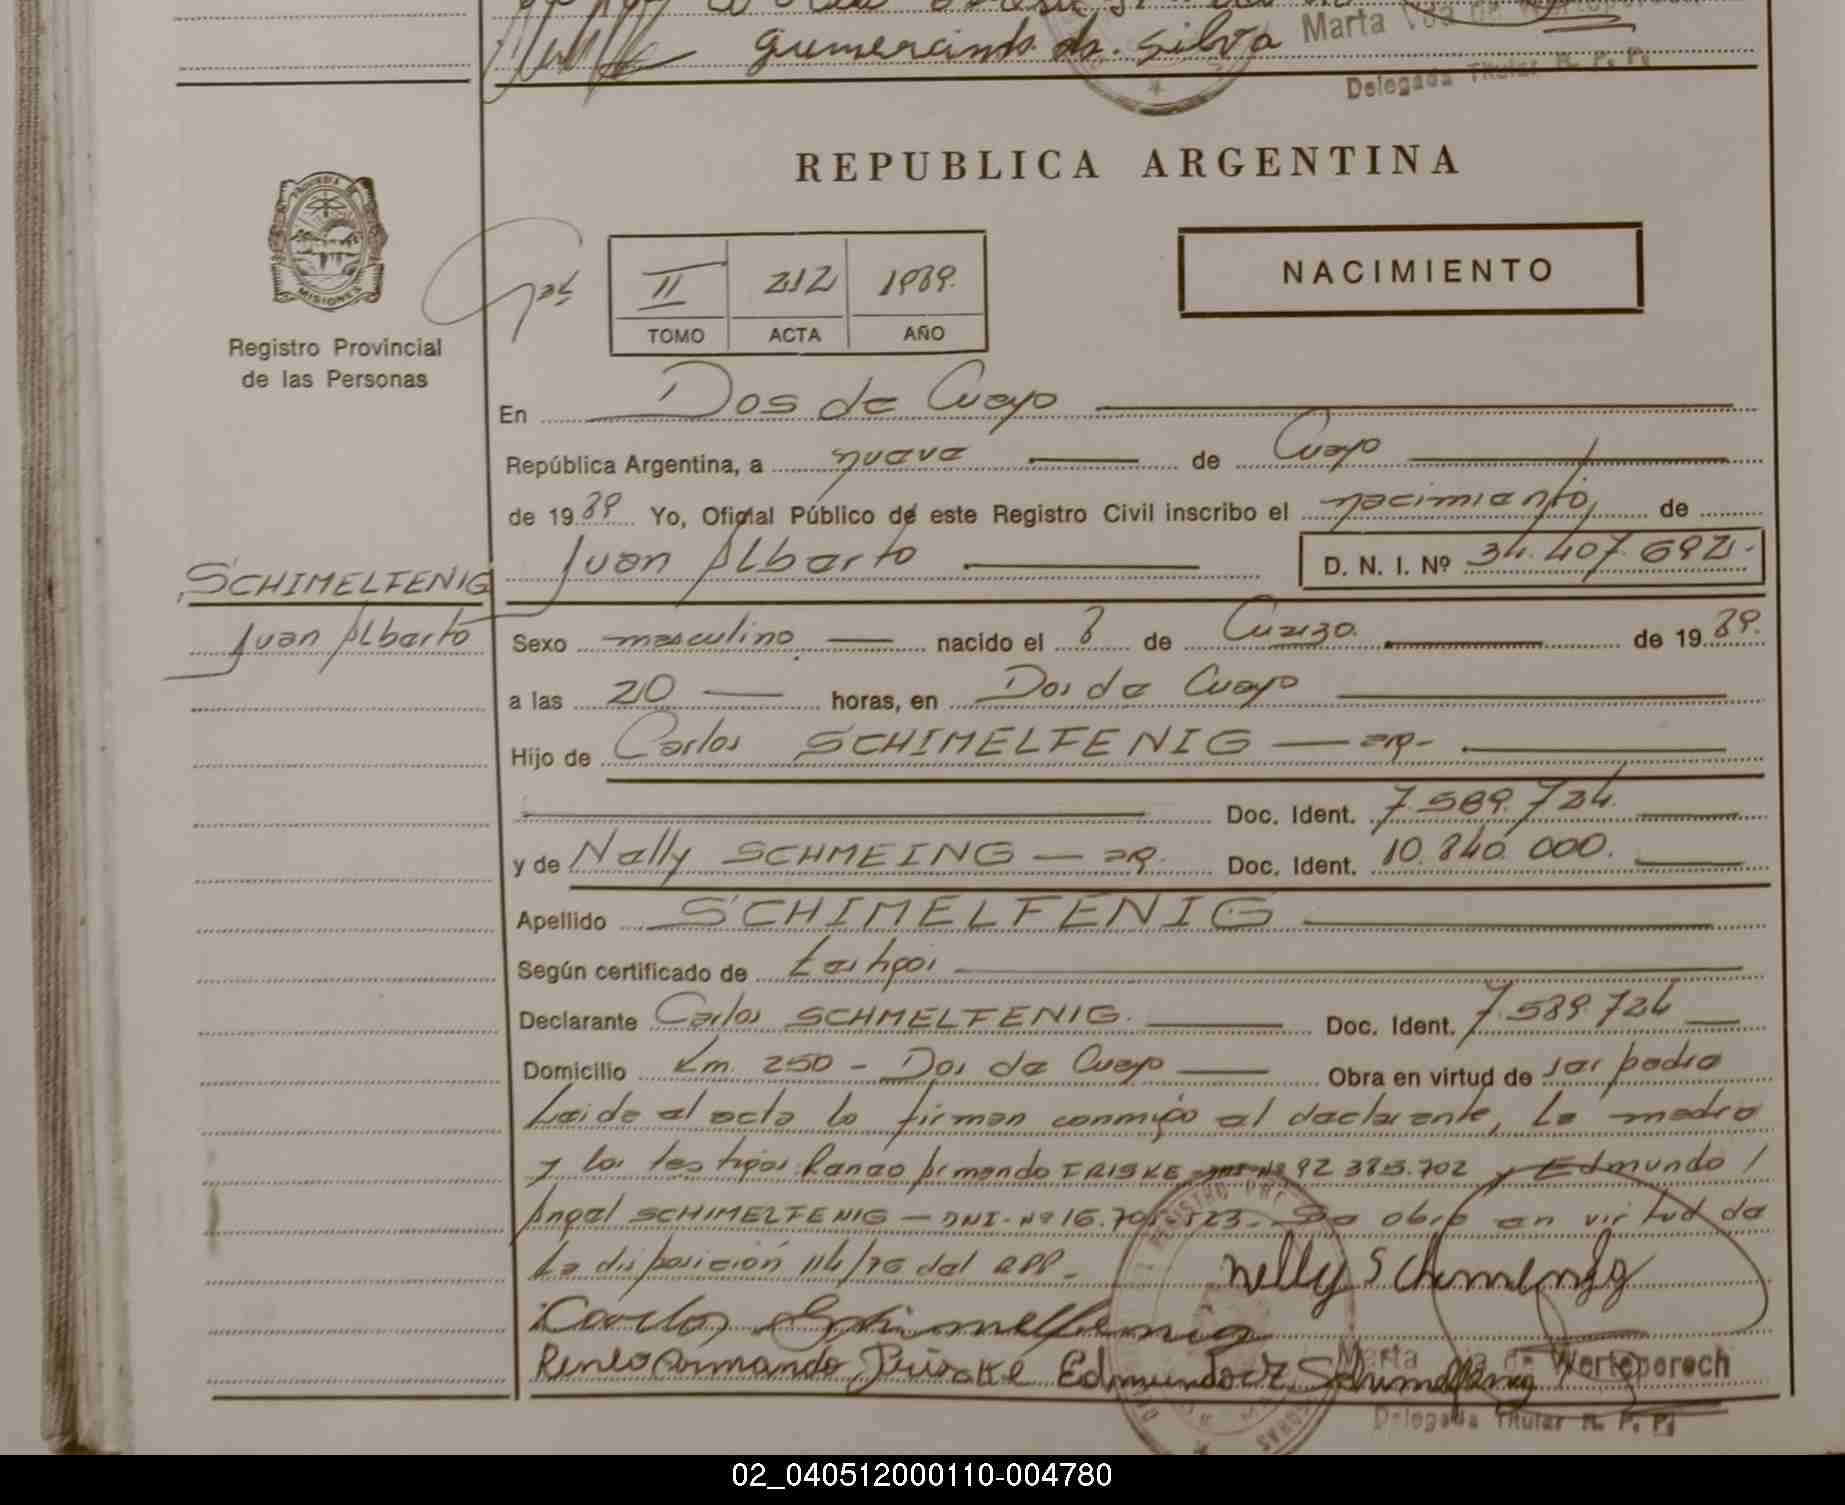 Gumercindo da. Silva Marta Vda de
Delegada Titular R. P. P.
REPUBLICA ARGENTINA
PROVINCIA DE MISIONES
Registro Provincial
de las Personas
II 212 1989.
TOMO ACTA AÑO
NACIMIENTO
En Dos de Mayo
República Argentina, a nueve de Mayo
de 1989 Yo, Oficial Público de este Registro Civil inscribo el nacimiento de
SCHIMELFENIG
Juan Alberto
Juan Alberto D. N. I. Nº 34.407.692.
Sexo masculino nacido el 8 de Marzo. de 1989.
a las 20 horas, en Dos de Mayo
Hijo de Carlos SCHIMELFENIG - ar-
Doc. Ident. 7.589.724.
y de Nelly SCHMEING - ar. Doc. Ident. 10.840.000.
Apellido SCHIMELFENIG
Según certificado de testigos
Declarante Carlos SCHMELFENIG. Doc. Ident. 7.589.724
Domicilio Km. 250 - Dos de Mayo Obra en virtud de ser padre
Leide el acta lo firman conmigo el declarante, la madre
y los testigos: Reneo Armando FRISKE DNI Nº 92 385.702 y Edmundo /
Angel SCHIMELFENIG - DNI - Nº 16.70 523 - Se obra en virtud de
la disposición 114/76 del RPP.
Nelly Schimenfg
Carlos Schimelfenig
Reneo Armando Friske Edmundo Schimelfenig
Marta Vda de Werteperoch
Delegada Titular R. P. P.
02_040512000110-004780